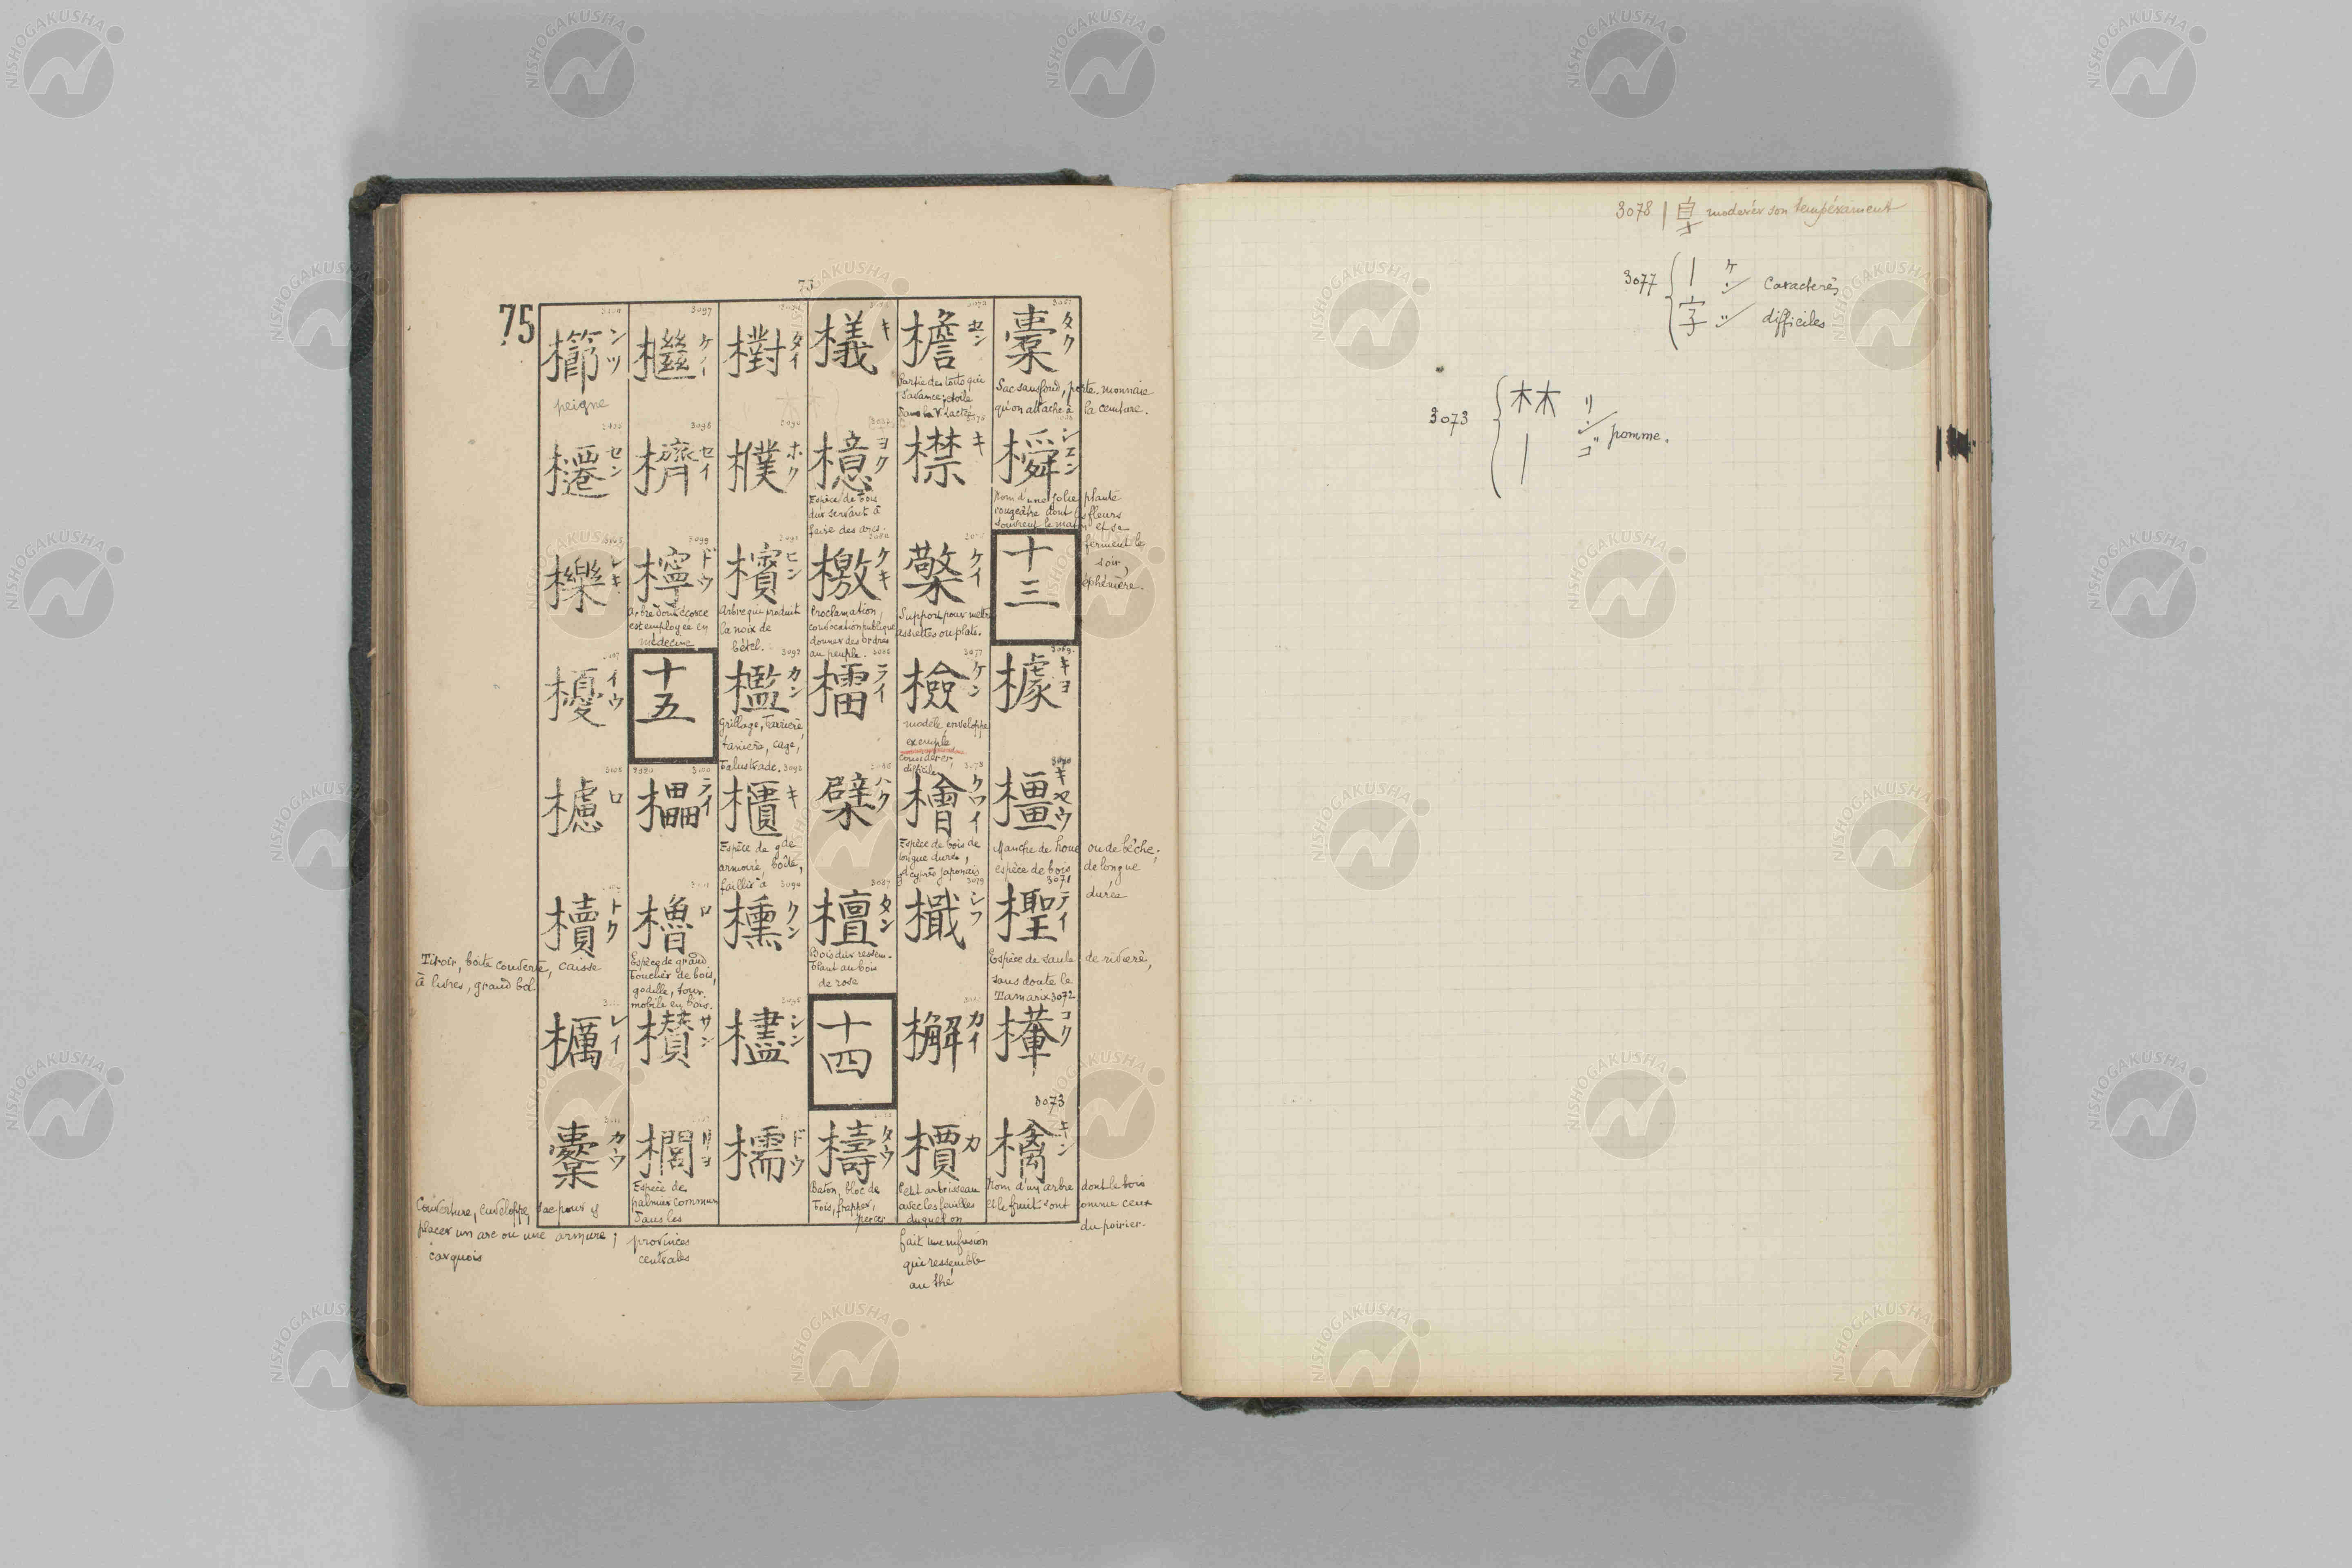 75
75
橐 タク
Sac sans fond, porte-monnaie
qu'on attache à la ceinture.
橓 シエン
Nom d'une jolie plante
rougeâtre dont les fleurs
s'ouvrent le matin et se
ferment le
soir,
éphémère.
十三
3069
𣚎 キヨ
3070
橿 キヤウ
Manche de houe ou de bêche;
espèce de bois de longue
durée
3071
檉 テイ
Espèce de saule de rivière,
sans doute le
Tamarix
3072
コク
3073
檎 キン
Nom d'un arbre dont le bois
et le fruit sont comme ceux
du poirier.
檐 セン
Partie des toits qui
s'avance; étoile
dans la V. Lactée
襟 キ
檠 ケイ
Support pour mettre
assiettes ou plats.
3077
檢 ケン
modèle, enveloppe
exemple
considérer,
difficile
3078
檜 クワイ
Espèce de bois de
longue durée,
gd cyprès japonais
3079
檝 シフ
檞 カイ
檟 カ
Petit arbrisseau
avec les feuilles
duquel on
fait une infusion
qui ressemble
au thé
檥 キ
檍 ヨク
Espèce de bois
dur servant à
faire des arcs.
檄 ケキ
Proclamation,
convocation publique
donner des ordres
au peuple.
檑 ライ
檗 ハク
3087
檀 タン
Bois dur ressem-
blant au bois
de rose
十四
檮 タウ
Baton, bloc de
bois, frapper,
percer
檇 タイ
3090
樸 ホク
檳 ヒン
Arbre qui produit
la noix de
bétel.
3092
檻 カン
Grillage, barrière,
tanière, cage,
balustrade.
櫃 キ
Espèce de gde
armoire, boîte,
3094
櫄 クン
3095
シン
檽 ドウ
3097
檵 ケイ
3098
櫅 セイ
3099
檸 ドウ
Arbre dont l'écorce
est employée en
médecine
十五
3100
櫑 ライ
櫓 ロ
Espèce de grand
bouclier de bois,
godille, tour
mobile en bois.
欑 サン
櫚 リヨ
Espèce de
palmier commun
dans les
provinces
centrales
櫛 シツ
peigne
櫏 セン
櫟 レキ
櫌 イウ
櫖 ロ
櫝 トク
Tiroir, boîte couverte, caisse
à livres, grand bol
櫔 レイ
櫜 カウ
Couverture, enveloppe, sac pour y
placer un arc ou une armure;
carquois
3078 | modérer son tempérament
3077 | ケン Caractères
字 ジ difficiles
3073 林 リン
| ゴ pomme.